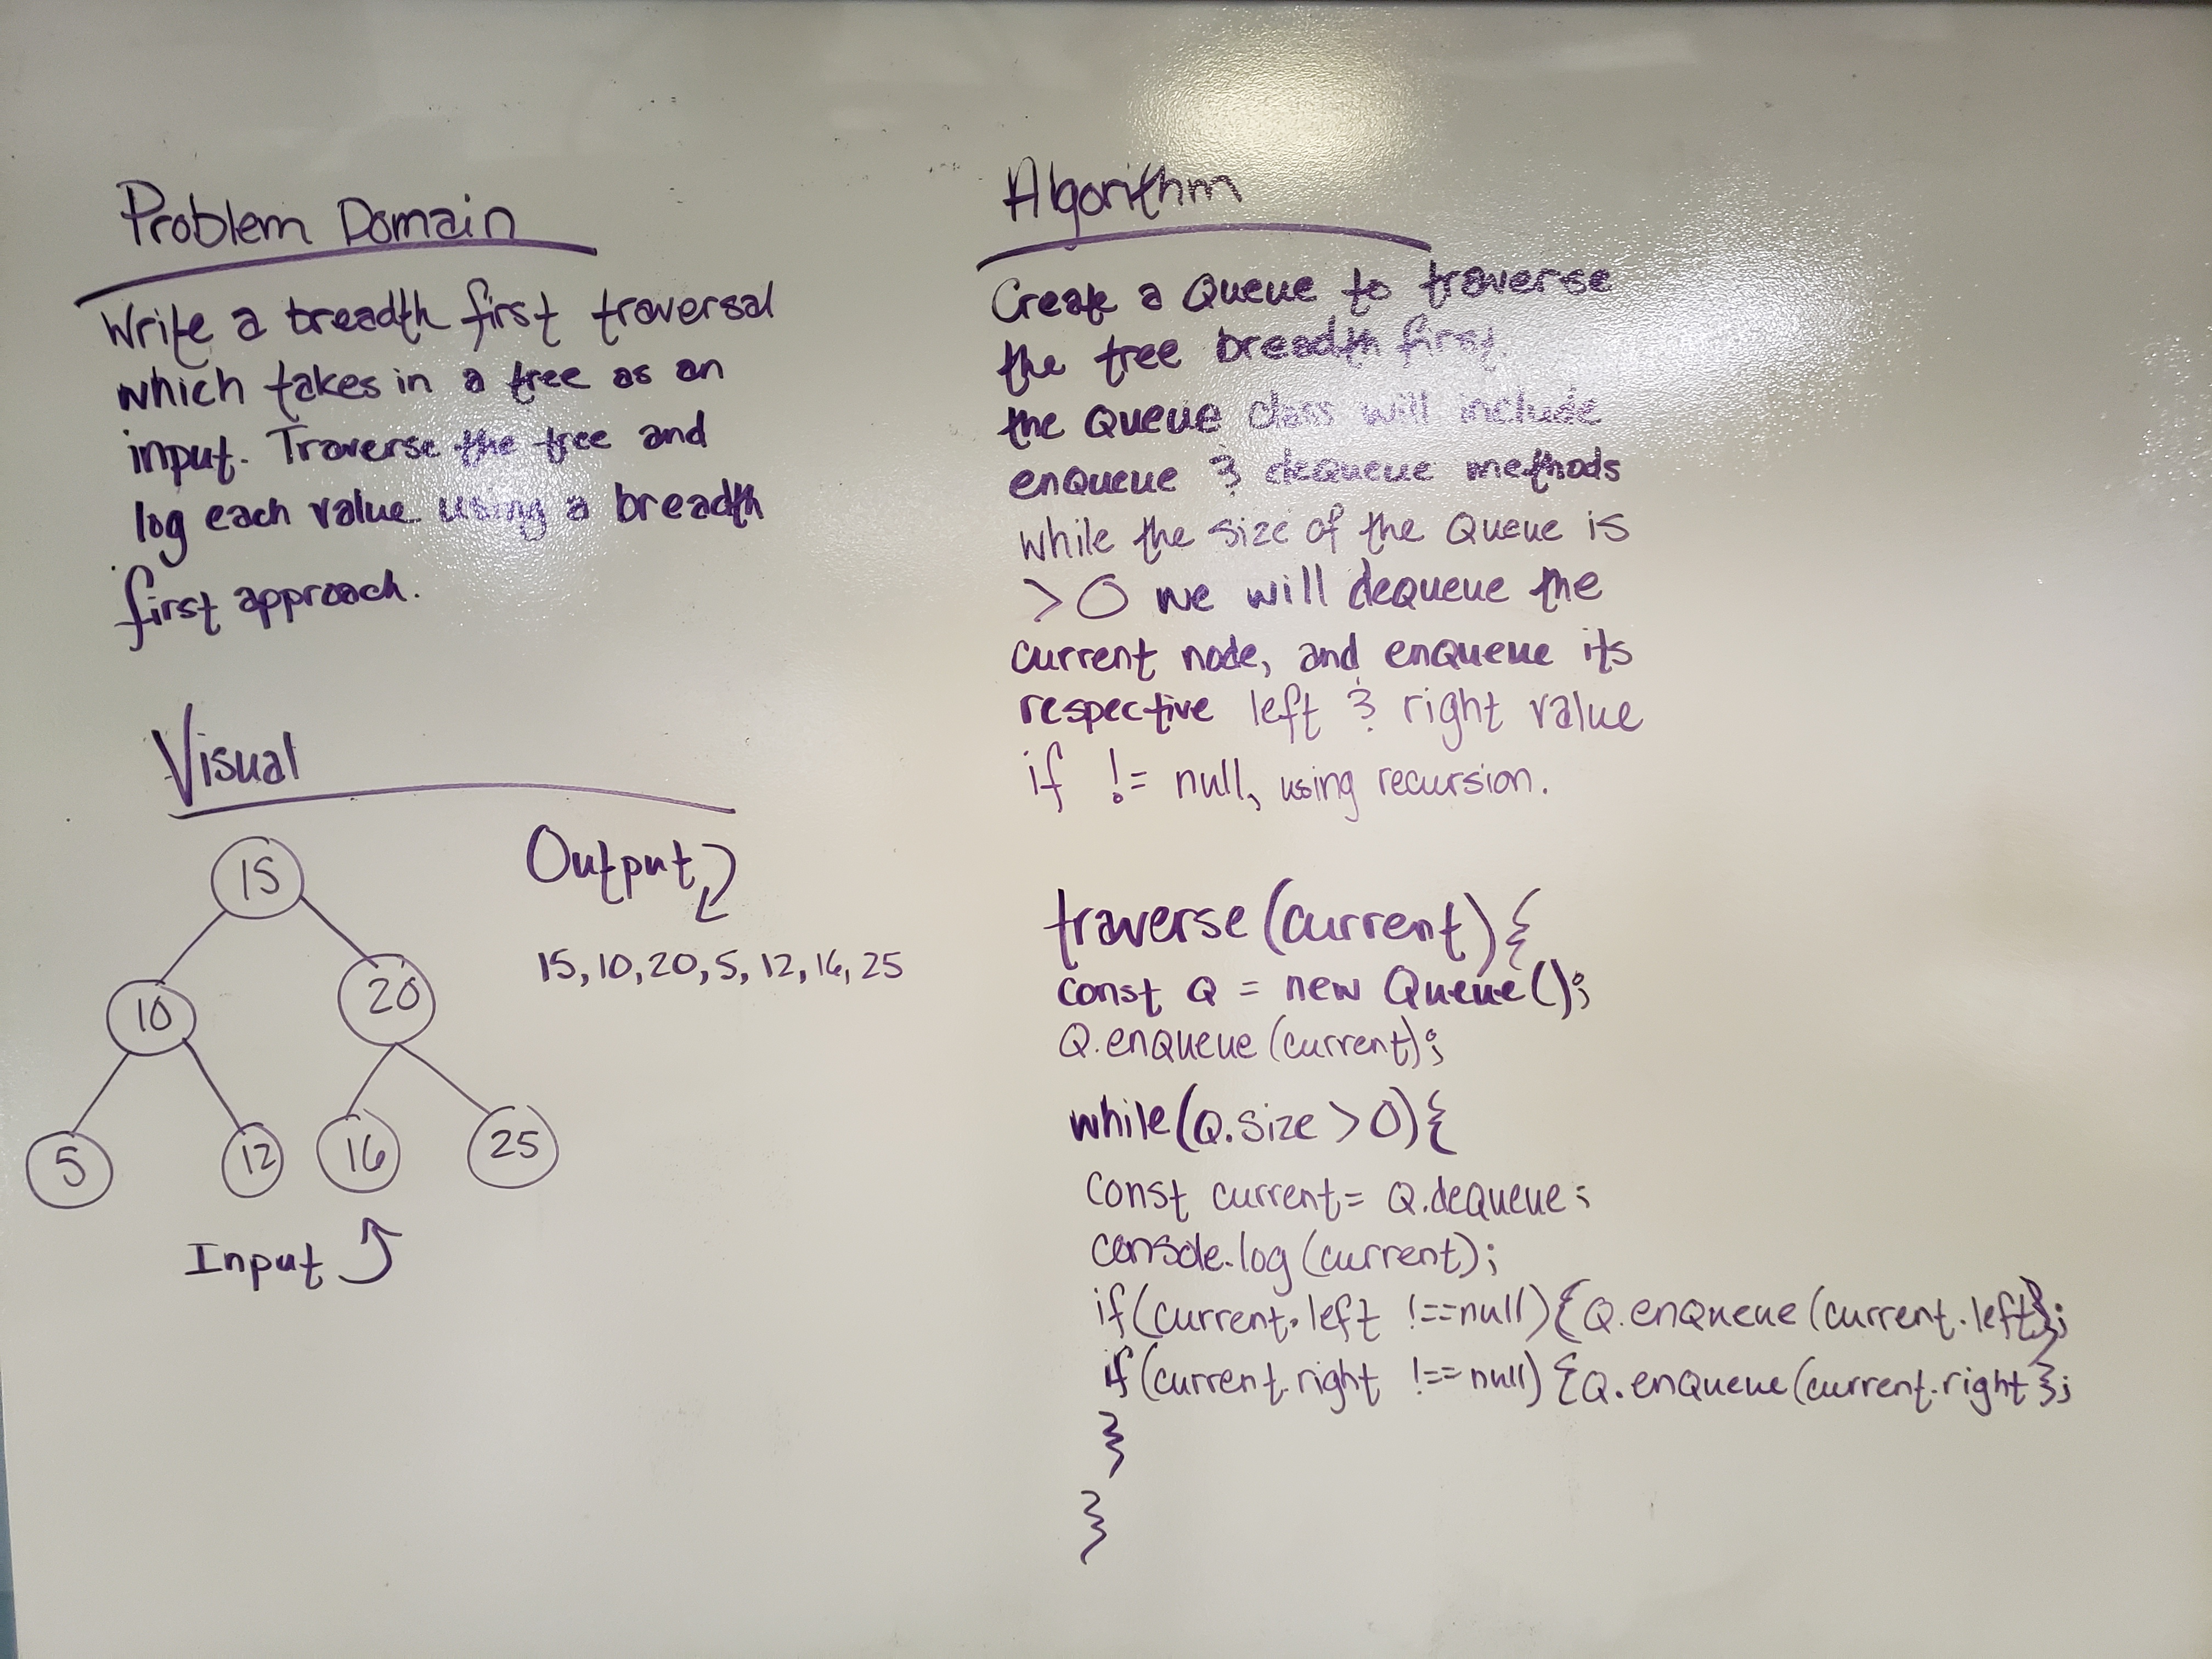 Problem Domain
Write a breadth first traversal
which takes in a tree as an
input. Traverse the tree and
log each value using a breadth
first approach.
Visual
15
10
20
5
12
16
25
Input
Output
15, 10, 20, 5, 12, 16, 25
Algorithm
Create a Queue to traverse
the tree breadth first.
the Queue class will include
enqueue & dequeue methods
while the size of the Queue is
>0 we will dequeue the
current node, and enqueue its
respective left & right value
if != null, using recursion.
traverse(current){
const Q = new Queue();
Q.enqueue(current);
while(Q.size >0){
const current= Q.dequeue;
console.log(current);
if(current.left !==null){Q.enqueue(current.left};
if(current.right !==null){Q.enqueue(current.right};
}
}